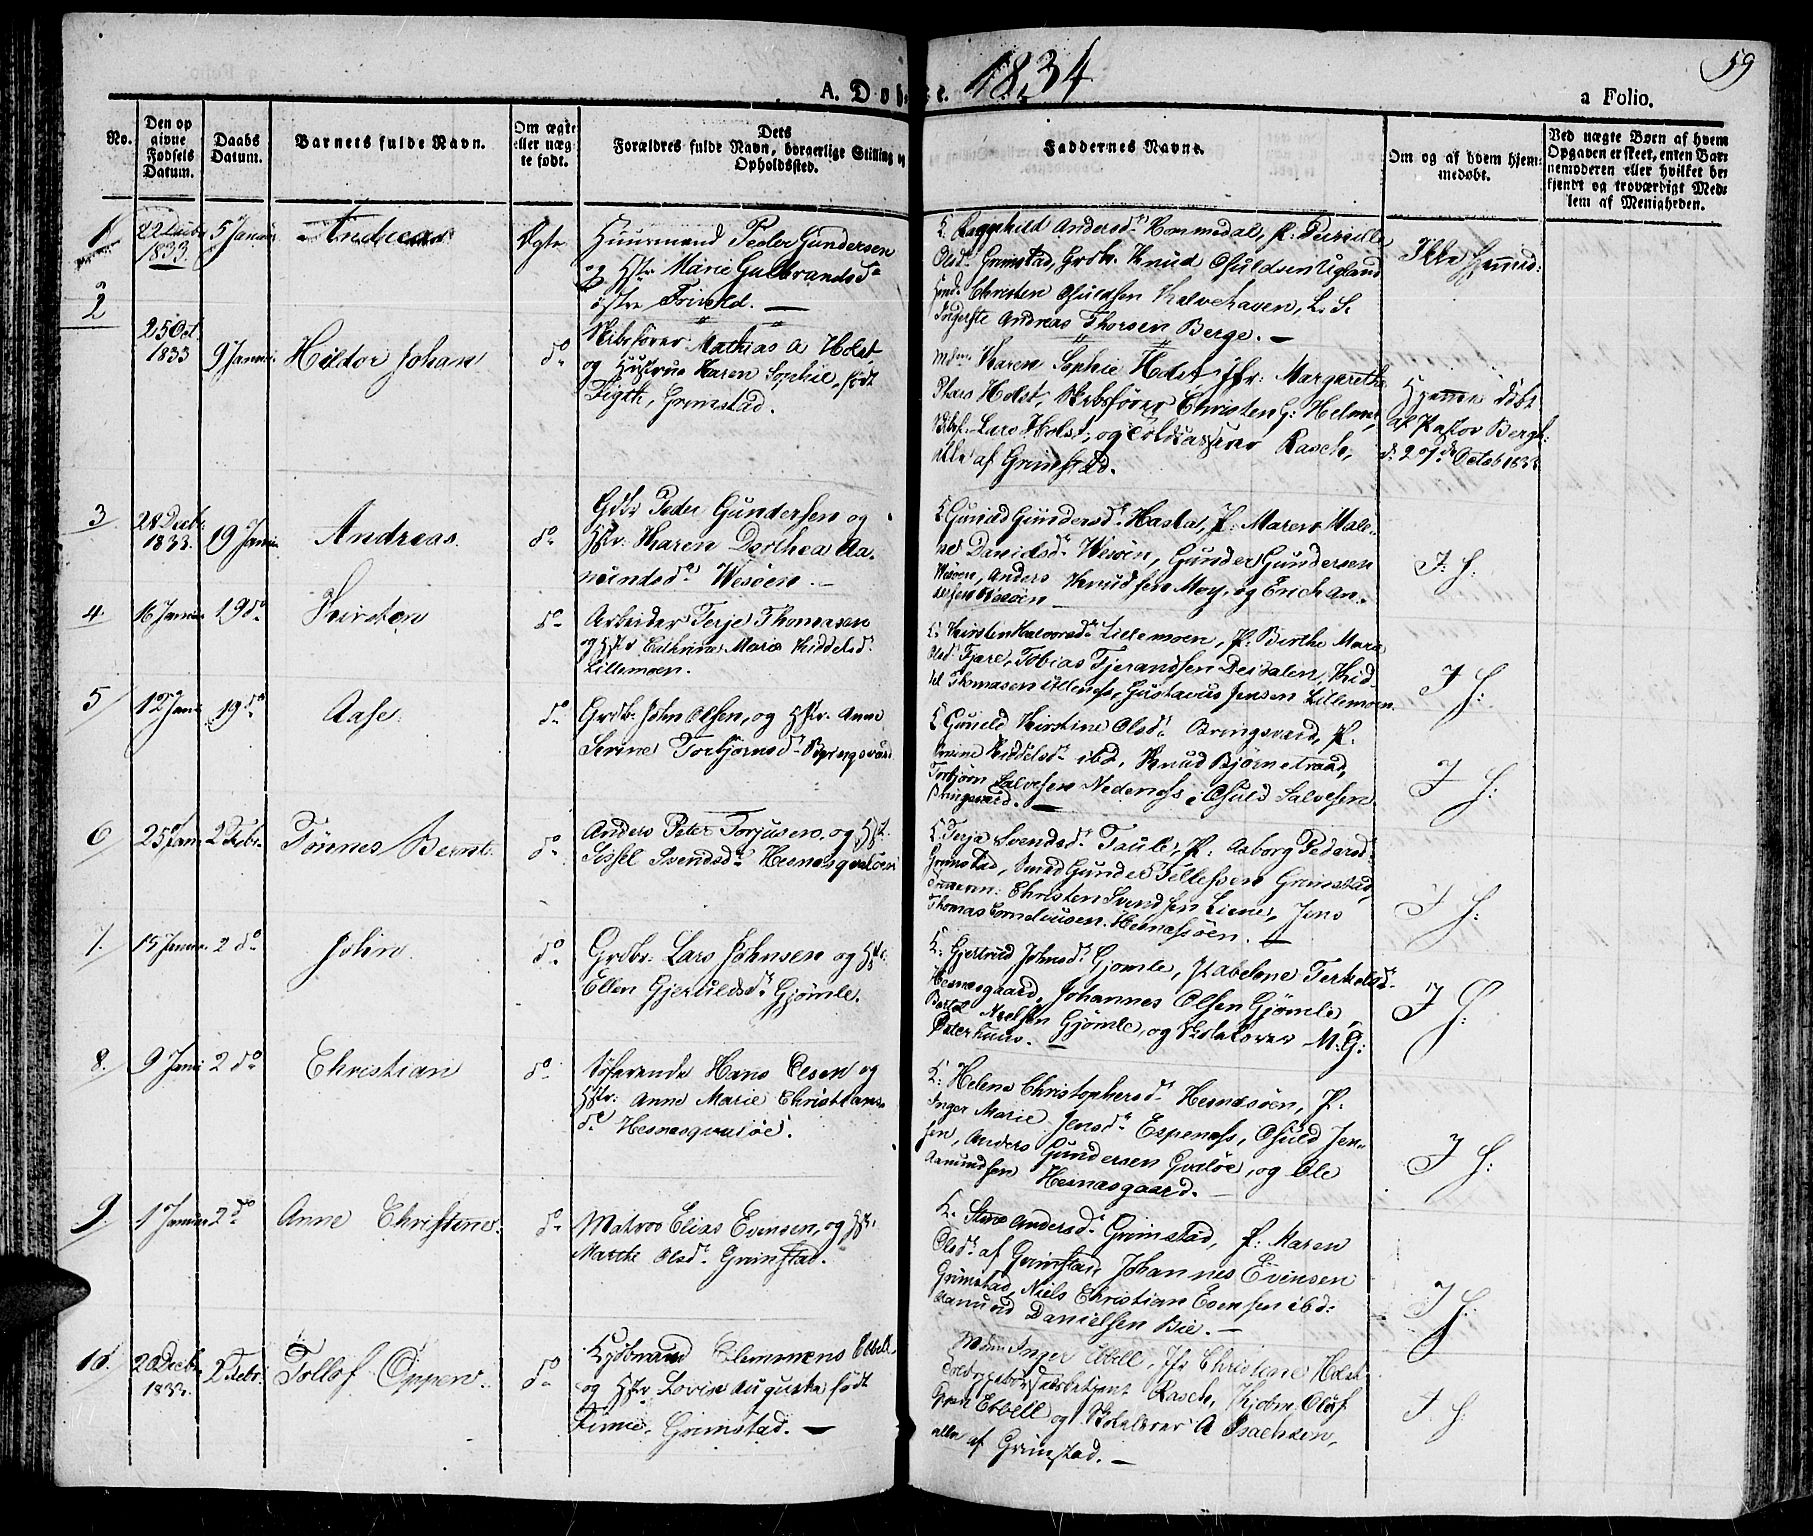 59
A. Døbte. 1834
a Folio.
No.
Den op
givne
Fødsels
Datum.
Daabs
Datum.
Barnets fulde Navn.
Om ægte
eller uæg
te født.
Dets
Forældres fulde Navn, borgerlige Stilling og
Opholdssted.
Faddernes Navne.
Om og af hvem hjem:
medøbt.
Ved uægte Børn af hvem
Opgaven er skeet, enten Bar
nemoderen eller hvilket be
kjendt og troværdigt Med:
lem af Menigheden.
1
22 Decbr
1833.
5 Januar
Andreas
Ægte
Huusmand Peder Gundersen
og Hstr Marie Gulbrandsd
østre Frivold. —
Ragnhild Andersd Hommedal, P:
Olsd Grimstad, Grdbr. Knud Osuldsen Ugland
Christen Osuldsen Kalvehaven, L. S.
Andreas Thorsen Berge. —
Ikke Hjemmed:
2
25 Oct.
1833
9 Januar
Haldor Johan
do
Skibsfører Mathias A Holst
og Hustrue Karen Sophie, født
Figth, Grimstad.
Mdme Karen Sophie Holst Jfr: Margarethe
Holst, Skibsfører Christen G: Helmer,
Skbsf. Lars Holst, og Toldcasserer Rasch,
alle af Grimstad.
Hjemme døbt
af Pastor Bergh
d: 27de Octob 1833
3
28 Decbr.
1833.
19 Janu
Andreas.
do
Grdbr Peder Gundersen og
Hstr: Karen Dorthea Aa-
mundsd Vesøen. —
K Gunild Gundersd Hasla, P: Maren Male-
ne Danielsd Vesøen, Gunder Gundersen
Vesøen, Anders Knudsen Moy, og Erich An-
dersen Vesøen
I: H:
4
16 Januar
19 do
Kirsten
do
Arbeider Terje Thomasen
og Hstr Cathrine Marie Kiddelsd
Lillemoen.
K. Kirsten Halvorsd Lillemoen, P: Birthe Marie
Olsd Fjære, Tobias Tjerandsen Dersalen, Kid-
del Thomasen, Gustavus Jensen Lillemoen.
I H:
5
12 Janu
19 do
Aase.
do
Grdbr. John Olsen, og Hstr. Anne
Serine Torbjørnsd Bringsværd
K Guneld Kirstine Olsd. Bringsværd, P.
Kiddelsd ibd, Knud Bjørnetraad,
Torbjørn Salvesen Nedenæss, Osuld Salvesen
Bringsværd. —
I H:
6
25 Janu
2 Febr.
Tønnes Bernt.
do
Anders Peter Torjusen, og Hst.
Sissel Svendsd Hesnesqvaløen
K Terja Svendsd Taule, P. Aaborg Pedersd
Grimstad, Smed Gunder Tellefsen Grimstad,
Christen Svendsen Liene, Jens
Thomas Corneliusen Hesnessøen. —
I H:
7.
15 Januar
2 do
John.
do
Grdbr: Lars Johnsen og Hstr:
Ellen Gjeruldsd Gjømle.
K. Gjertrud Johnsd Gjømle, P Abelone Terkelsd
Hesnesgaard, Johannes Olsen Gjømle,
Berte Neelsen Gjømle, og Skolelærer M. G:
Peterhuus. —
I H:
8.
9 Janu
2 do
Christian
do
Søfarende Hans Olsen og
Hstr: Anne Marie Christians-
d Hesnesqvaløe.
K: Helene Christophersd Hesnesøen, P:
Inger Marie Jensd Espenæss, Osuld Jen-
sen, Anders Gundersen Qvaløe, og Ole
Aanundsen Hesnesgaard. —
I H:
9
1 Januar
2 do
Anne Christine.
do
Matros Elias Evensen, og Hst.
Marthe Olsd Grimstad.
K. Andersd Grimstad, P: Maren
Olsd af Grimstad, Johannes Evensen
Grimstad, Niels Christian Evensen ibd.
Aanund Danielsen Bie. —
I H:
10.
20 Decbr
1833.
2 Febr.
Tollof Oppen.
do
Kjøbmand Clemmens Ebbell
og Hstr Lovise Augusta, født
Grimstad. —
Mdme Inger Ebbell, Jfr Christine Holst
Rasch, Kjøbm Oluf
Ebbell og Skolelærer A Isachsen,
alle af Grimstad. —
I H: